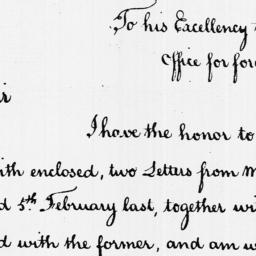 To his Excellency
Office for for
ir
I have the honor to
ith enclosed, two Letters from M
d 5th February last, together wi
d with the former, and am w